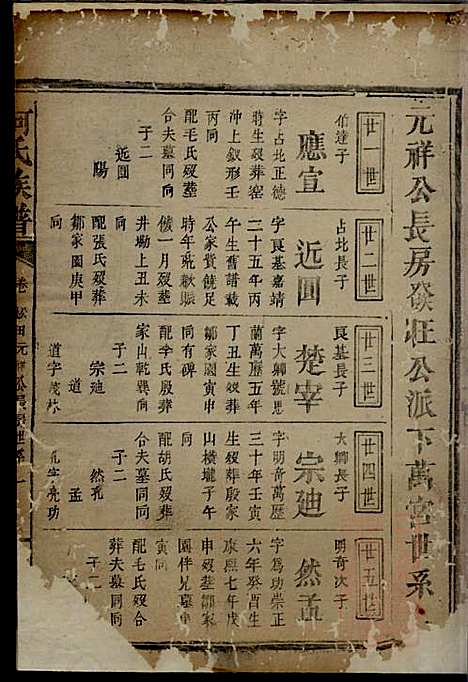 元祥公長房發旺公派下萬宮世系
廿一世
伯達子
應宣
字占比正德
時生歿葬窑
沖上釵形壬
丙同
配毛氏歿葬
合夫墓同同
子二
近圖
陽
廿二世
占比長子
近圖
字良基嘉靖
二十五年丙
午生舊譜載
公家貲饒足
時年荒歉賑
儀一月歿葬
井坳上丑未
同
配張氏歿葬
鄒家園庚甲
同
廿三世
良基長子
楚宰
字大卿號思
蘭萬歷五年
丁丑生歿葬
鄒家園寅申
同有碑
配李氏歿葬
家山乾巽同
子二
宗迪
道
道字茂林
廿四世
大卿長子
宗迪
字明奇萬歷
三十年壬寅
生歿葬殷家
山橫壠子午
同
配胡氏歿葬
合夫墓同同
子二
然孔
孟
孔字亮功
廿五世
明奇次子
然孟
字為功崇正
六年癸酉生
康熙七年戌
申歿葬鄒家
園伴兄墓申
寅同
配毛氏歿合
葬夫墓同同
子二
何氏族譜
卷